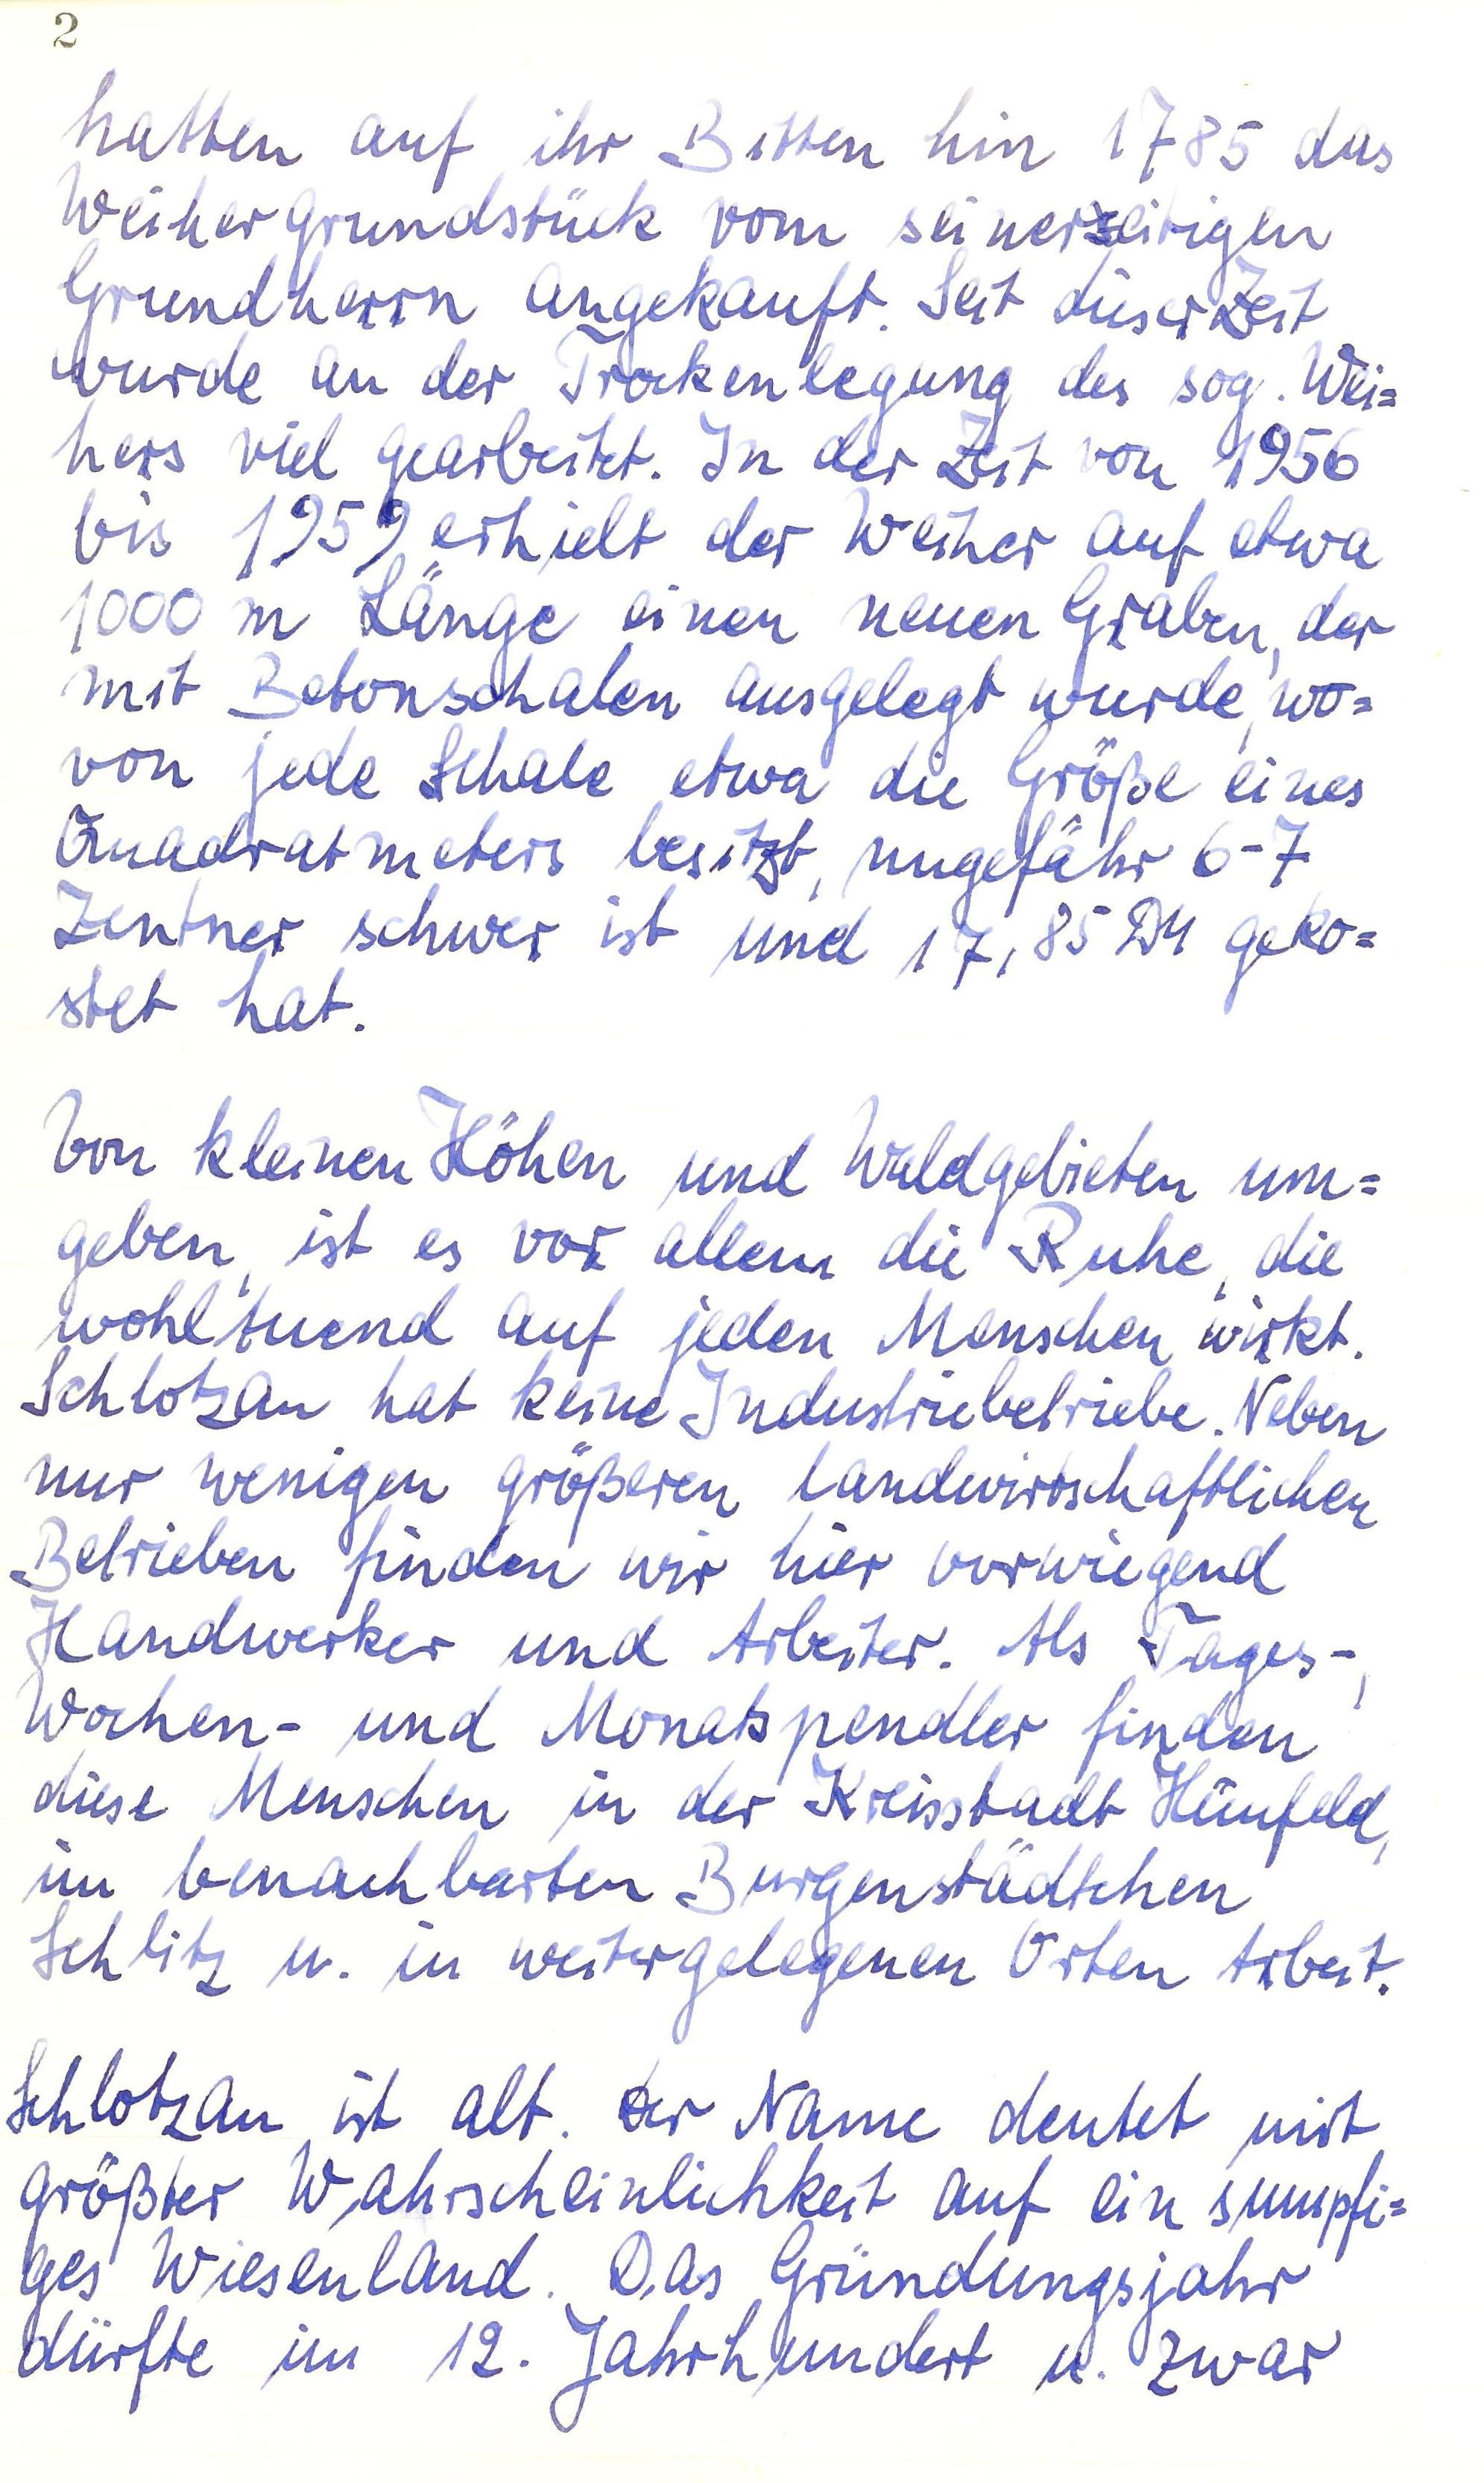 2
hatten auf ihr Bitten hin 1785 das
Weihergrundstück vom seinerzeitigen
Grundherrn angekauft. Seit dieser Zeit
wurde an der Trockenlegung des sog. Wei=
hers viel gearbeitet. In der Zeit von 1956
bis 1959 erhielt der Weiher auf etwa
1000 m Länge einen neuen Graben, der
mit Betonschalen ausgelegt wurde, wo=
von jede Schale etwa die Größe eines
Quadratmeters besitzt, ungefähr 6-7
Zentner schwer ist und 17,85 DM geko=
stet hat.
Von kleinen Höhen und Waldgebieten um=
geben, ist es vor allem die Ruhe, die
wohltuend auf jeden Menschen wirkt.
Schlotzau hat keine Industriebetriebe. Neben
nur wenigen größeren landwirtschaftlichen
Betrieben finden wir hier vorwiegend
Handwerker und Arbeiter. Als Tages-,
Wochen- und Monatspendler finden
diese Menschen in der Kreisstadt Hünfeld,
im benachbarten Burgenstädtchen
Schlitz u. in weitergelegenen Orten Arbeit.
Schlotzau ist alt. Der Name deutet mit
größter Wahrscheinlichkeit auf ein sumpfi=
ges Wiesenland. Das Gründungsjahr
dürfte im 12. Jahrhundert u. zwar